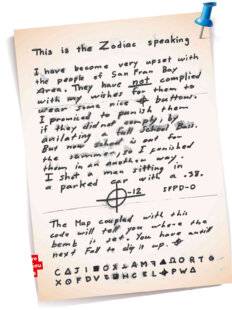 This is the Zodiac speaking
I have become very upset with
the people of San Fran Bay
Area. They have not complied
with my wishes for them to
wear some nice ⌖ buttons.
I promised to punish them
if they did not comply, by
anilating a full School Buss.
But now school is out for
the summer, so I punished
them in an another way.
I shot a man sitting in
a parked car with a .38.
⌖-12 SFPD-0
The Map coupled with this
code will tell you where the
bomb is set. You have antill
next Fall to dig it up. ⌖